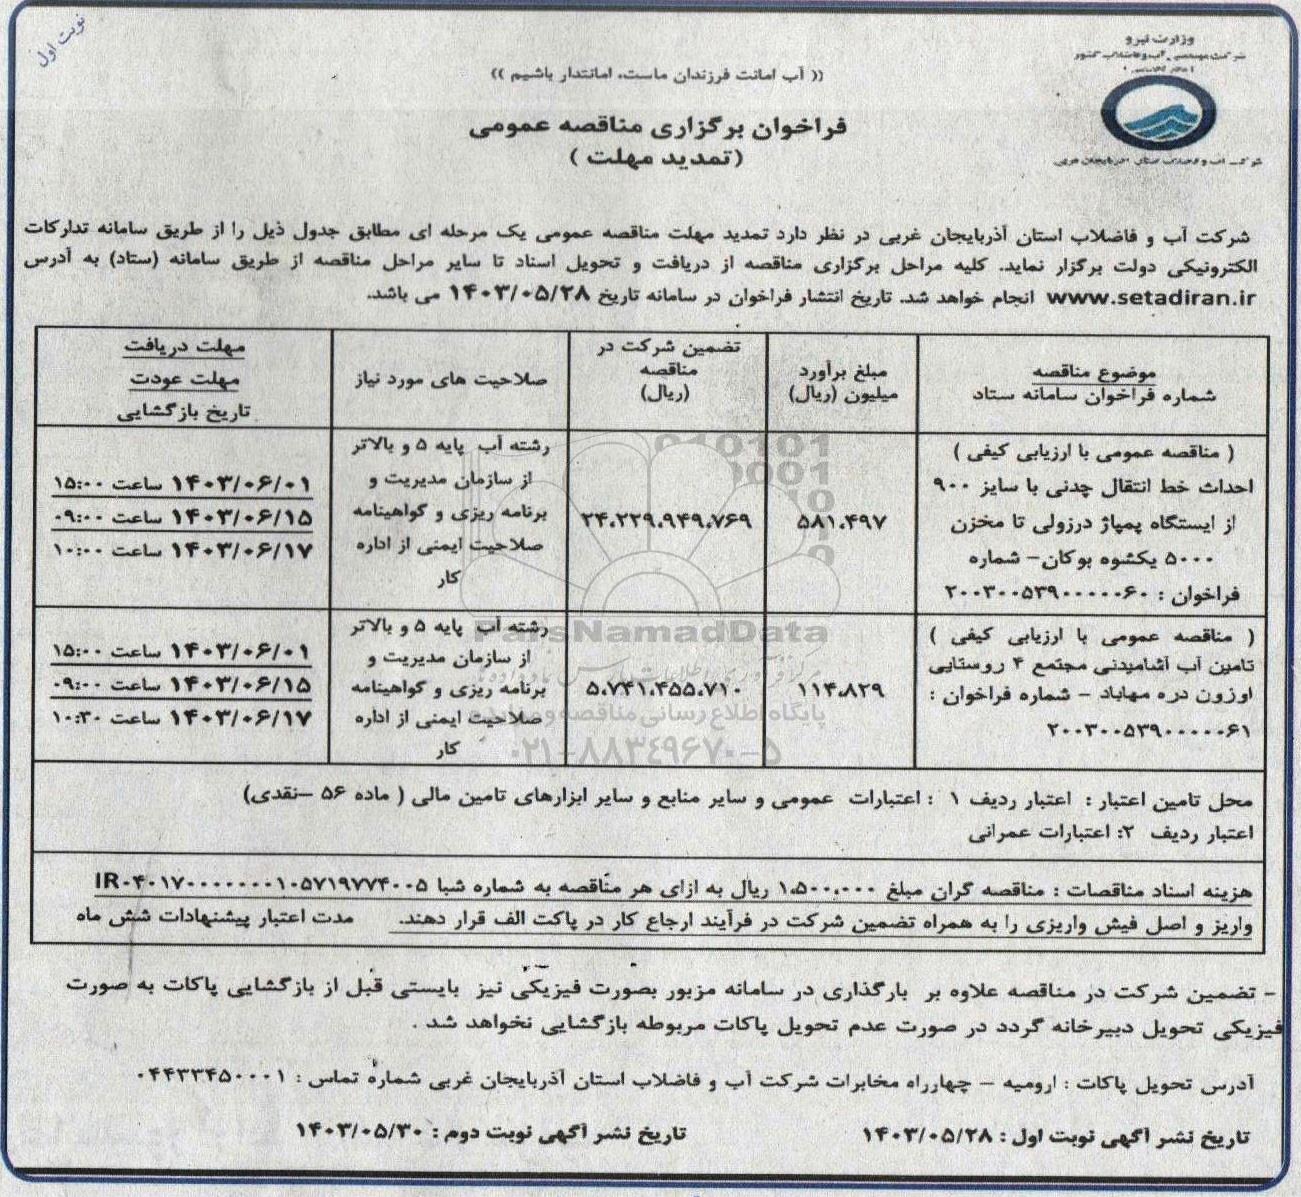 نوبت اول
وزارت نیرو
شرکت مهندسی آب و فاضلاب کشور
شرکت آب و فاضلاب استان آذربایجان غربی
(( آب امانت فرزندان ماست، امانتدار باشیم ))
فراخوان برگزاری مناقصه عمومی
(تمدید مهلت )
شرکت آب و فاضلاب استان آذربایجان غربی در نظر دارد تمدید مهلت مناقصه عمومی یک مرحله ای مطابق جدول ذیل را از طریق سامانه تدارکات
الکترونیکی دولت برگزار نماید. کلیه مراحل برگزاری مناقصه از دریافت و تحویل اسناد تا سایر مراحل مناقصه از طریق سامانه (ستاد) به آدرس
www.setadiran.ir انجام خواهد شد. تاریخ انتشار فراخوان در سامانه تاریخ ۱۴۰۳/۰۵/۲۸ می باشد.
موضوع مناقصه
شماره فراخوان سامانه ستاد
مبلغ برآورد
میلیون (ریال)
تضمین شرکت در
مناقصه
(ریال)
صلاحیت های مورد نیاز
مهلت دریافت
مهلت عودت
تاریخ بازگشایی
( مناقصه عمومی با ارزیابی کیفی )
احداث خط انتقال چدنی با سایز ۹۰۰
از ایستگاه پمپاژ درزولی تا مخزن
۵۰۰۰ یکشوه بوکان- شماره
فراخوان : ۲۰۰۳۰۰۵۳۹۰۰۰۰۰۶۰
۵۸۱،۴۹۷
۲۴،۲۲۹،۹۴۹،۷۶۹
رشته آب پایه ۵ و بالاتر
از سازمان مدیریت و
برنامه ریزی و گواهینامه
صلاحیت ایمنی از اداره
کار
۱۴۰۳/۰۶/۰۱ ساعت ۱۵:۰۰
۱۴۰۳/۰۶/۱۵ ساعت ۰۹:۰۰
۱۴۰۳/۰۶/۱۷ ساعت ۱۰:۰۰
( مناقصه عمومی با ارزیابی کیفی )
تامین آب آشامیدنی مجتمع ۴ روستایی
اوزون دره مهاباد - شماره فراخوان :
۲۰۰۳۰۰۵۳۹۰۰۰۰۰۶۱
۱۱۴،۸۲۹
۵،۷۴۱،۴۵۵،۷۱۰
رشته آب پایه ۵ و بالاتر
از سازمان مدیریت و
برنامه ریزی و گواهینامه
صلاحیت ایمنی از اداره
کار
۱۴۰۳/۰۶/۰۱ ساعت ۱۵:۰۰
۱۴۰۳/۰۶/۱۵ ساعت ۰۹:۰۰
۱۴۰۳/۰۶/۱۷ ساعت ۱۰:۳۰
ParsNamadData
پایگاه اطلاع رسانی مناقصه و مزایده
۰۲۱-۸۸۳۴۹۶۷۰-۵
محل تامین اعتبار : اعتبار ردیف ۱ : اعتبارات عمومی و سایر منابع و سایر ابزارهای تامین مالی ( ماده ۵۶ –نقدی)
اعتبار ردیف ۲: اعتبارات عمرانی
هزینه اسناد مناقصات : مناقصه گران مبلغ ۱،۵۰۰،۰۰۰ ریال به ازای هر مناقصه به شماره شبا IR۰۴۰۱۷۰۰۰۰۰۰۰۱۰۵۷۱۹۷۷۴۰۰۵
واریز و اصل فیش واریزی را به همراه تضمین شرکت در فرآیند ارجاع کار در پاکت الف قرار دهند. مدت اعتبار پیشنهادات شش ماه
- تضمین شرکت در مناقصه علاوه بر بارگذاری در سامانه مزبور بصورت فیزیکی نیز بایستی قبل از بازگشایی پاکات به صورت
فیزیکی تحویل دبیرخانه گردد در صورت عدم تحویل پاکات مربوطه بازگشایی نخواهد شد .
آدرس تحویل پاکات : ارومیه – چهارراه مخابرات شرکت آب و فاضلاب استان آذربایجان غربی شماره تماس : ۰۴۴۳۳۴۵۰۰۰۱
تاریخ نشر آگهی نوبت اول : ۱۴۰۳/۰۵/۲۸ تاریخ نشر آگهی نوبت دوم : ۱۴۰۳/۰۵/۳۰